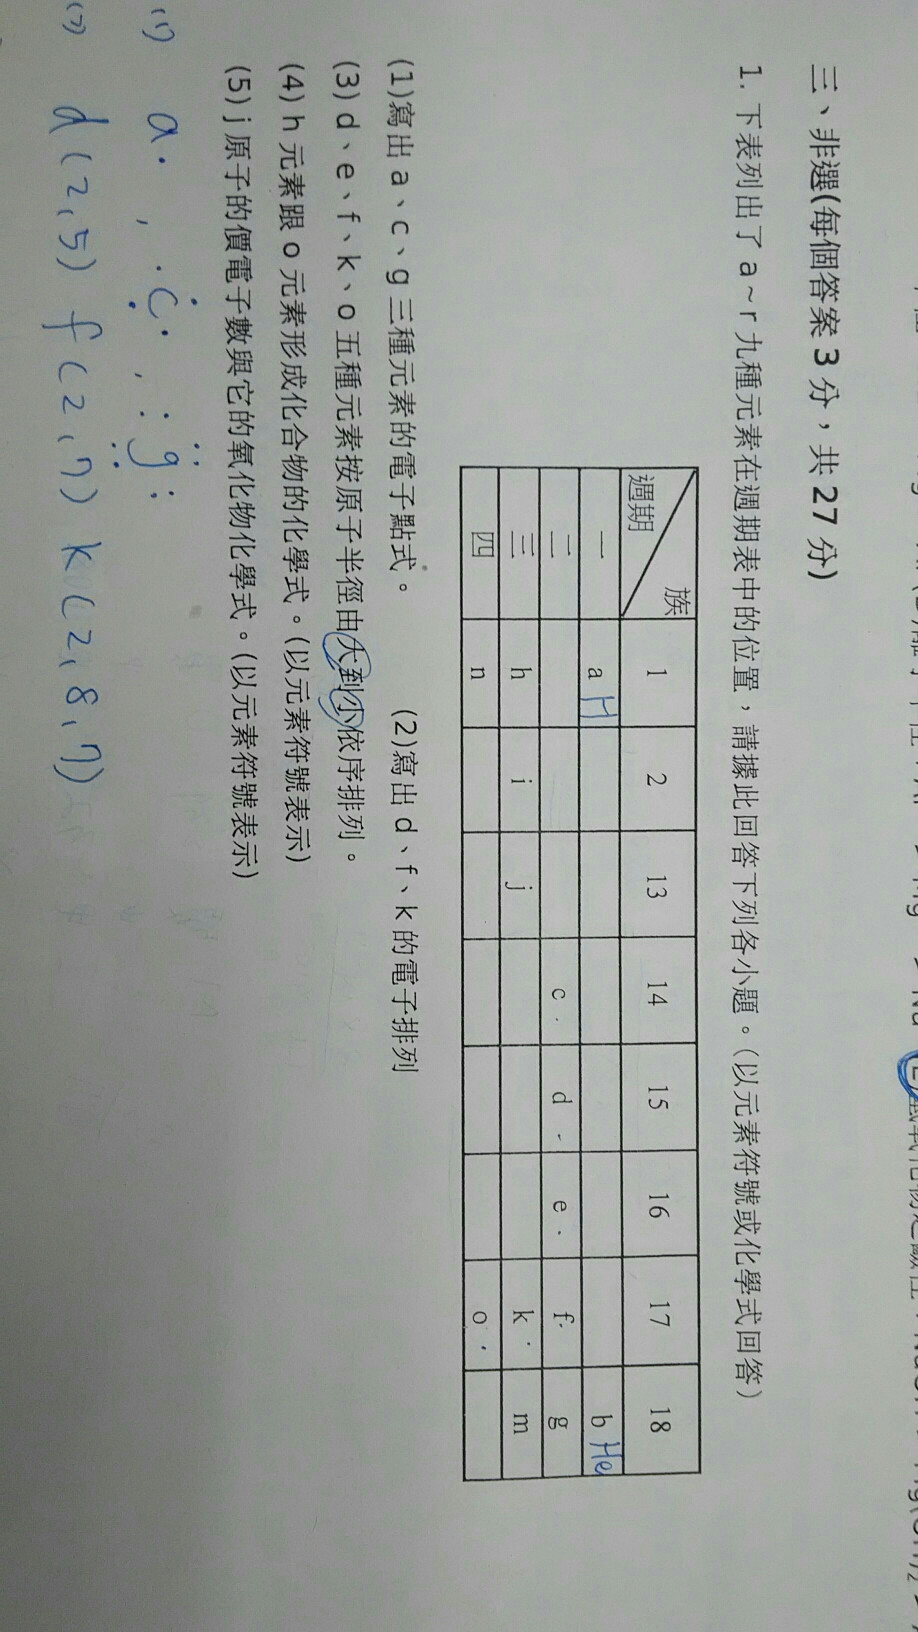 三、非選(每個答案 3 分，共 27 分)
1. 下表列出了 a～r 九種元素在週期表中的位置，請據此回答下列各小題。(以元素符號或化學式回答)
族
週期
1 2 13 14 15 16 17 18
一 a H b He
二 c d e f g
三 h i j k m
四 n o
(1)寫出 a、c、g 三種元素的電子點式。 (2)寫出 d、f、k 的電子排列
(3) d、e、f、k、o 五種元素按原子半徑由大到小依序排列。
(4) h 元素跟 o 元素形成化合物的化學式。(以元素符號表示)
(5) j 原子的價電子數與它的氧化物化學式。(以元素符號表示)
(1) a· , ·c· , :g:
(2) d(2,5) f(2,7) k(2,8,7)